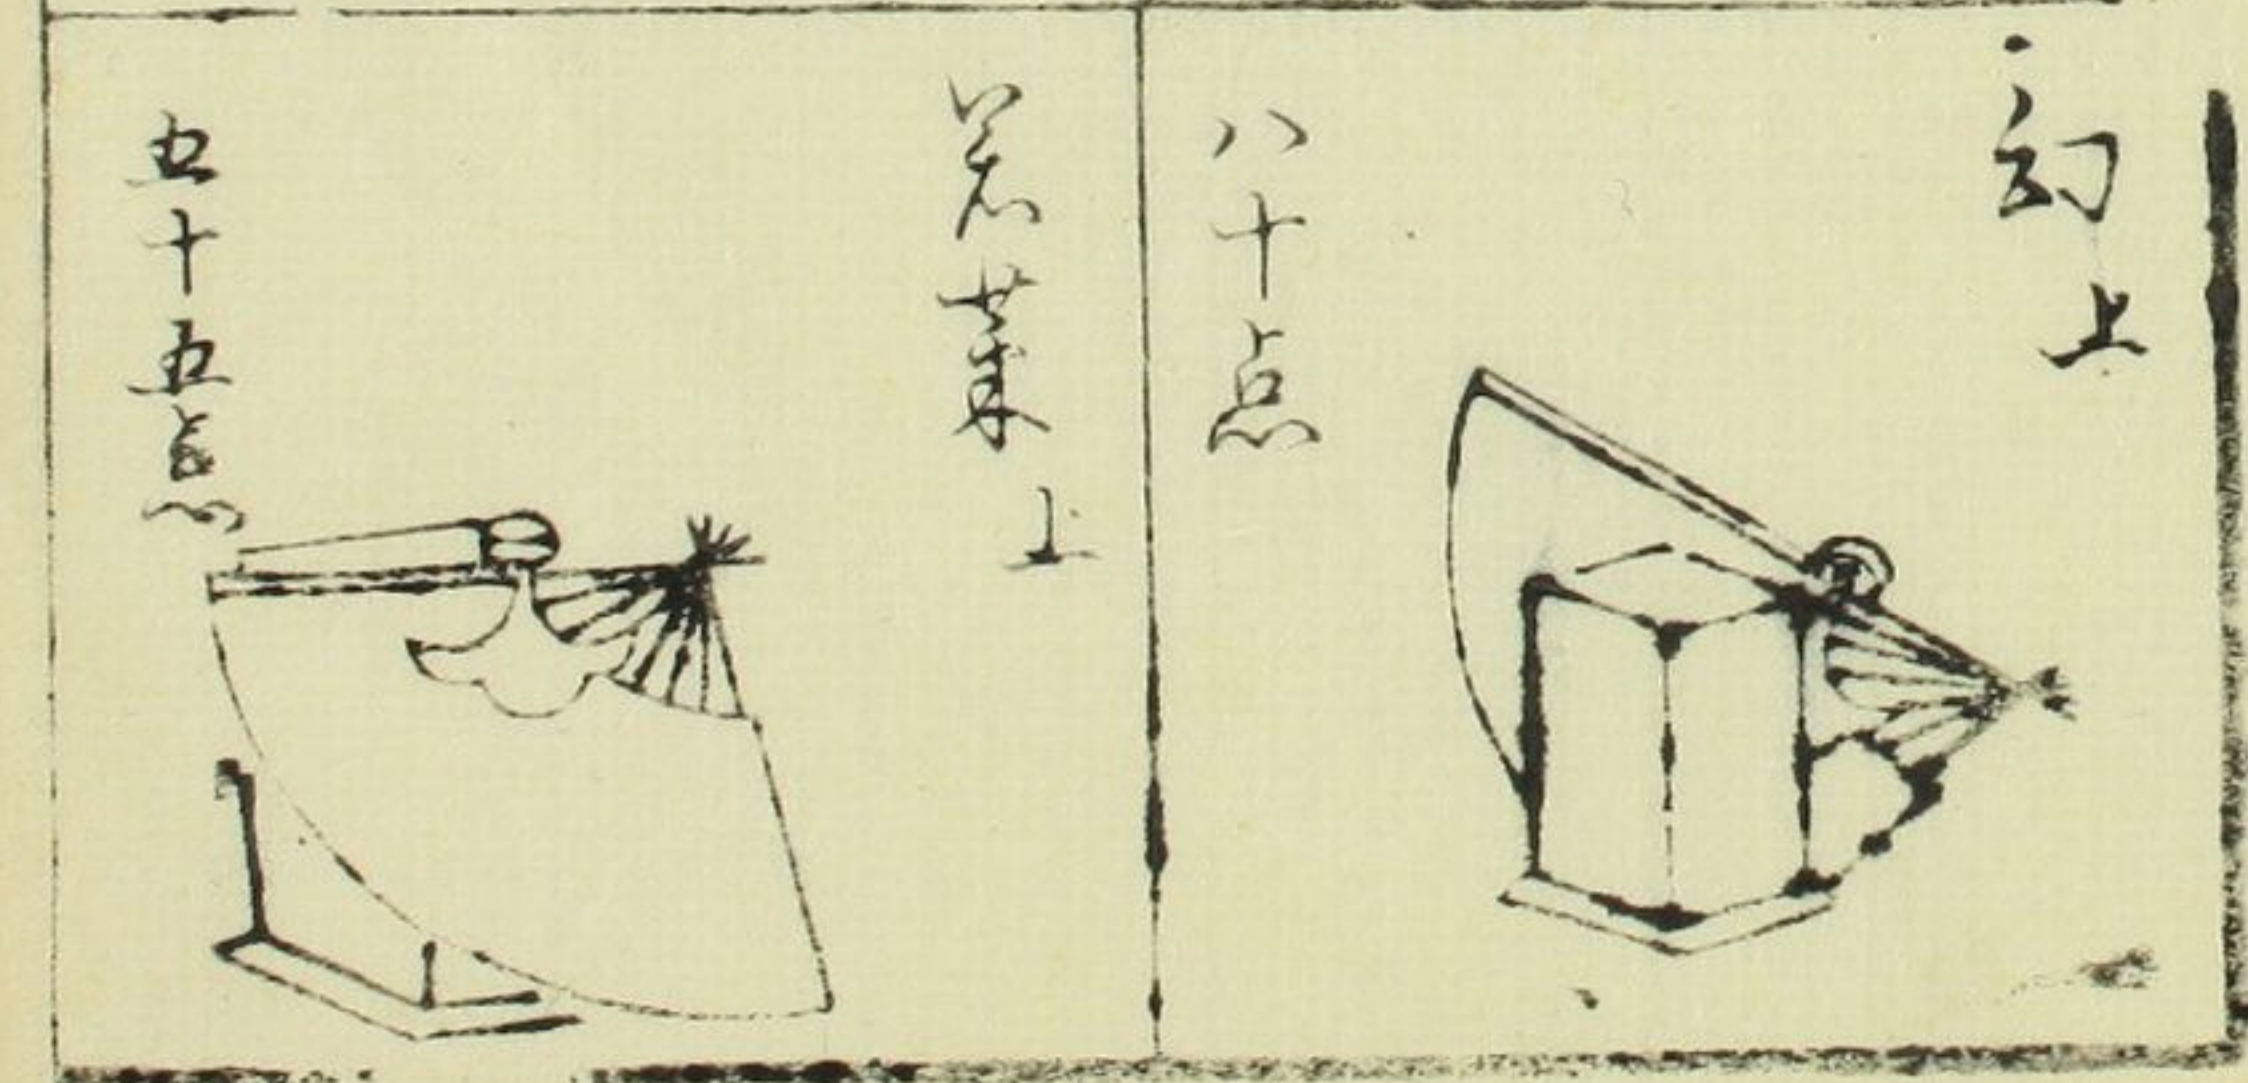 幻 上
八十点
若菜 上
五十五点